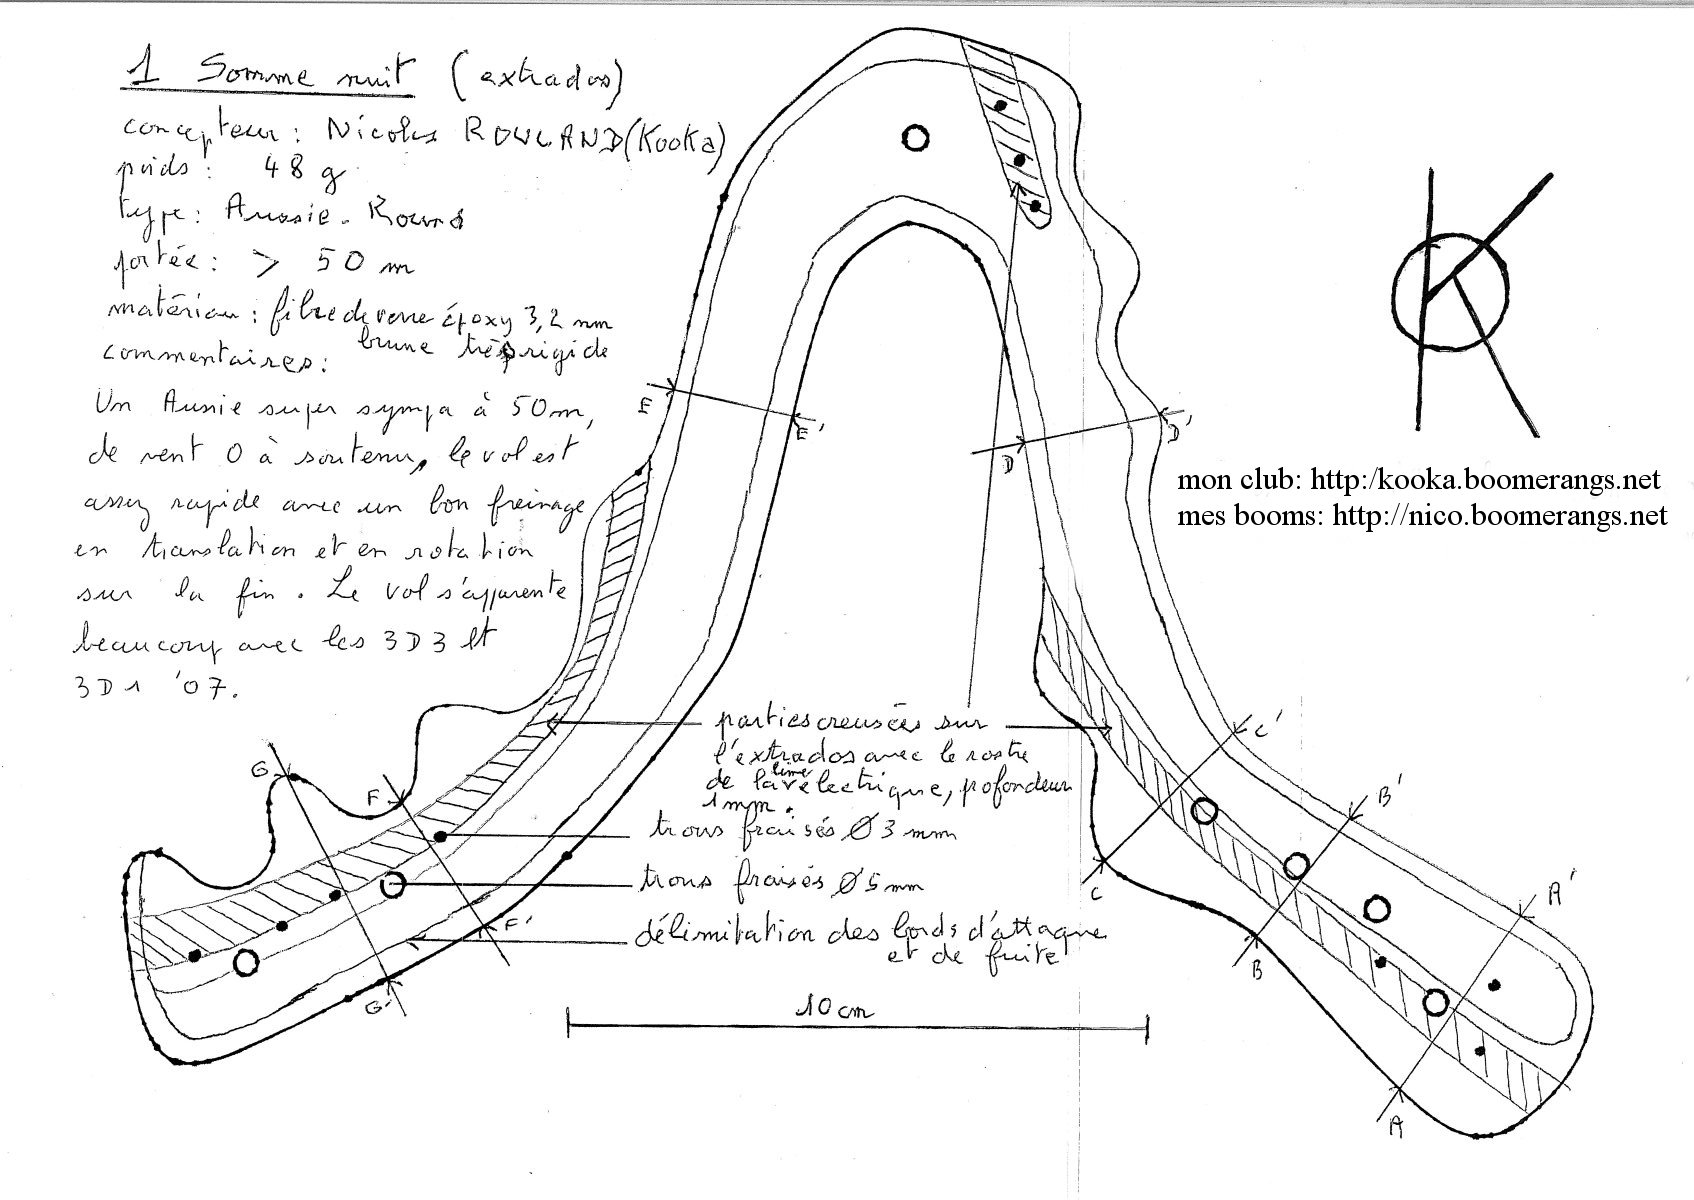 1 Somme nuit (extrados)
concepteur : Nicolas ROWLAND (Kooka)
poids : 48 g
type : Aussie - Round
portée : > 50 m
matériau : fibre de verre époxy 3,2 mm
brune très rigide
commentaires :
Un Aussie super sympa à 50m,
de vent 0 à soutenu, le vol est
assez rapide avec un bon freinage
en translation et en rotation
sur la fin. Le vol s'apparente
beaucoup avec les 3D3 et
3D1 '07.
mon club: http:/kooka.boomerangs.net
mes booms: http://nico.boomerangs.net
E
E'
D
D'
parties creusées sur
l'extrados avec le rostre
de la lime électrique, profondeur
1mm.
trous fraisés Ø 3 mm
trous fraisés Ø 5 mm
délimitation des bords d'attaque
et de fuite
10 cm
G
G'
F
F'
C
C'
B
B'
A
A'
K